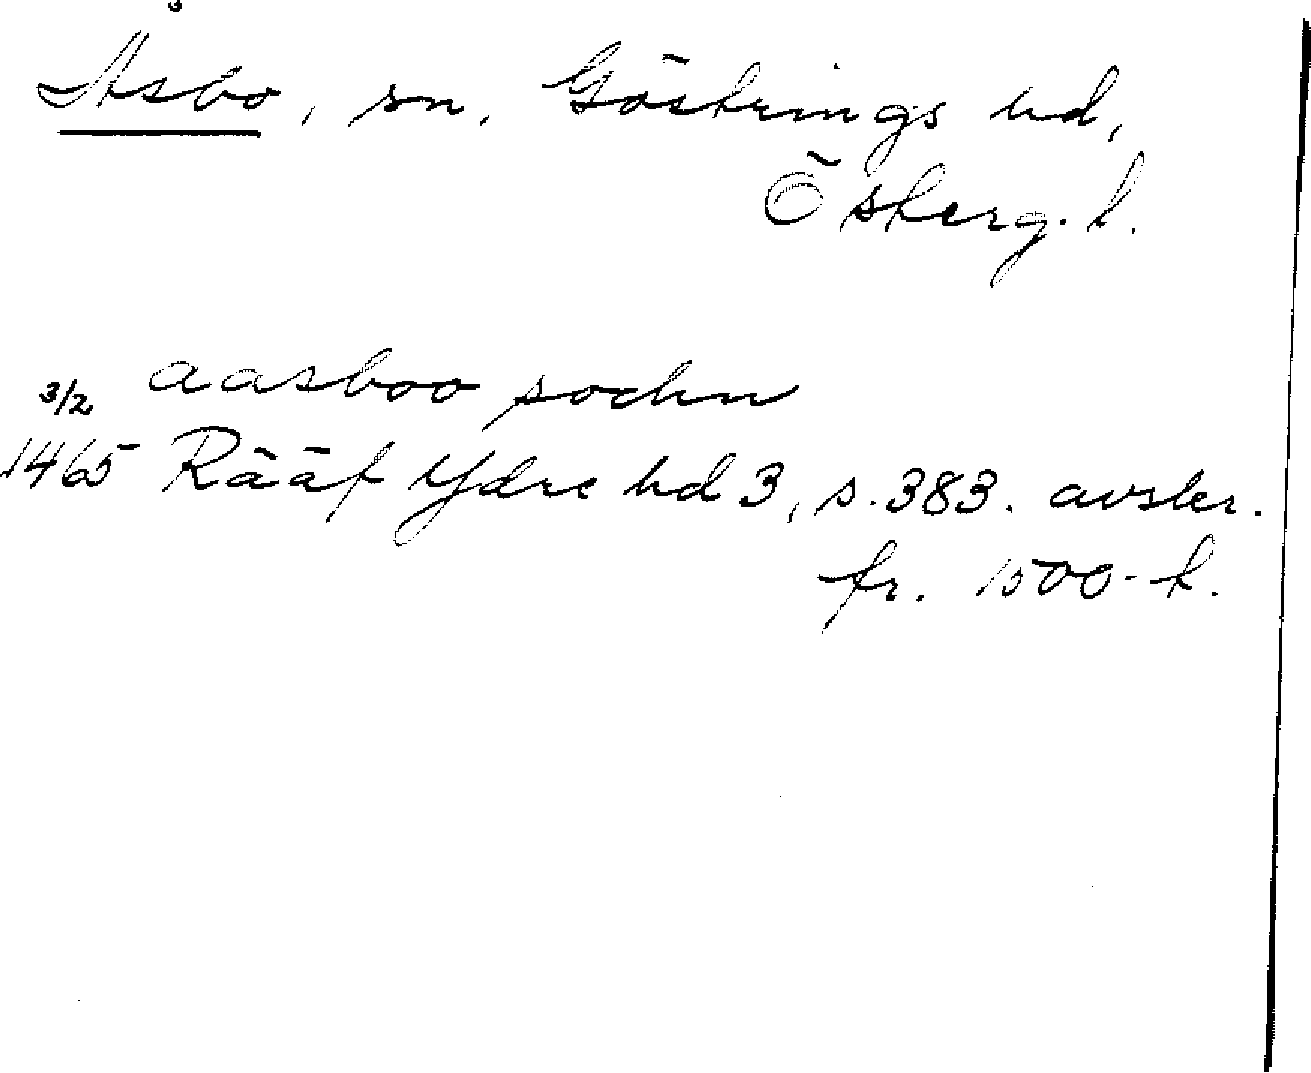 Åsbo, sn, Göstrings hd,
Österg. l.
3/2 aasboo sochn
1465 Rääf Ydre hd 3, s. 383. avskr.
fr. 1500-t.